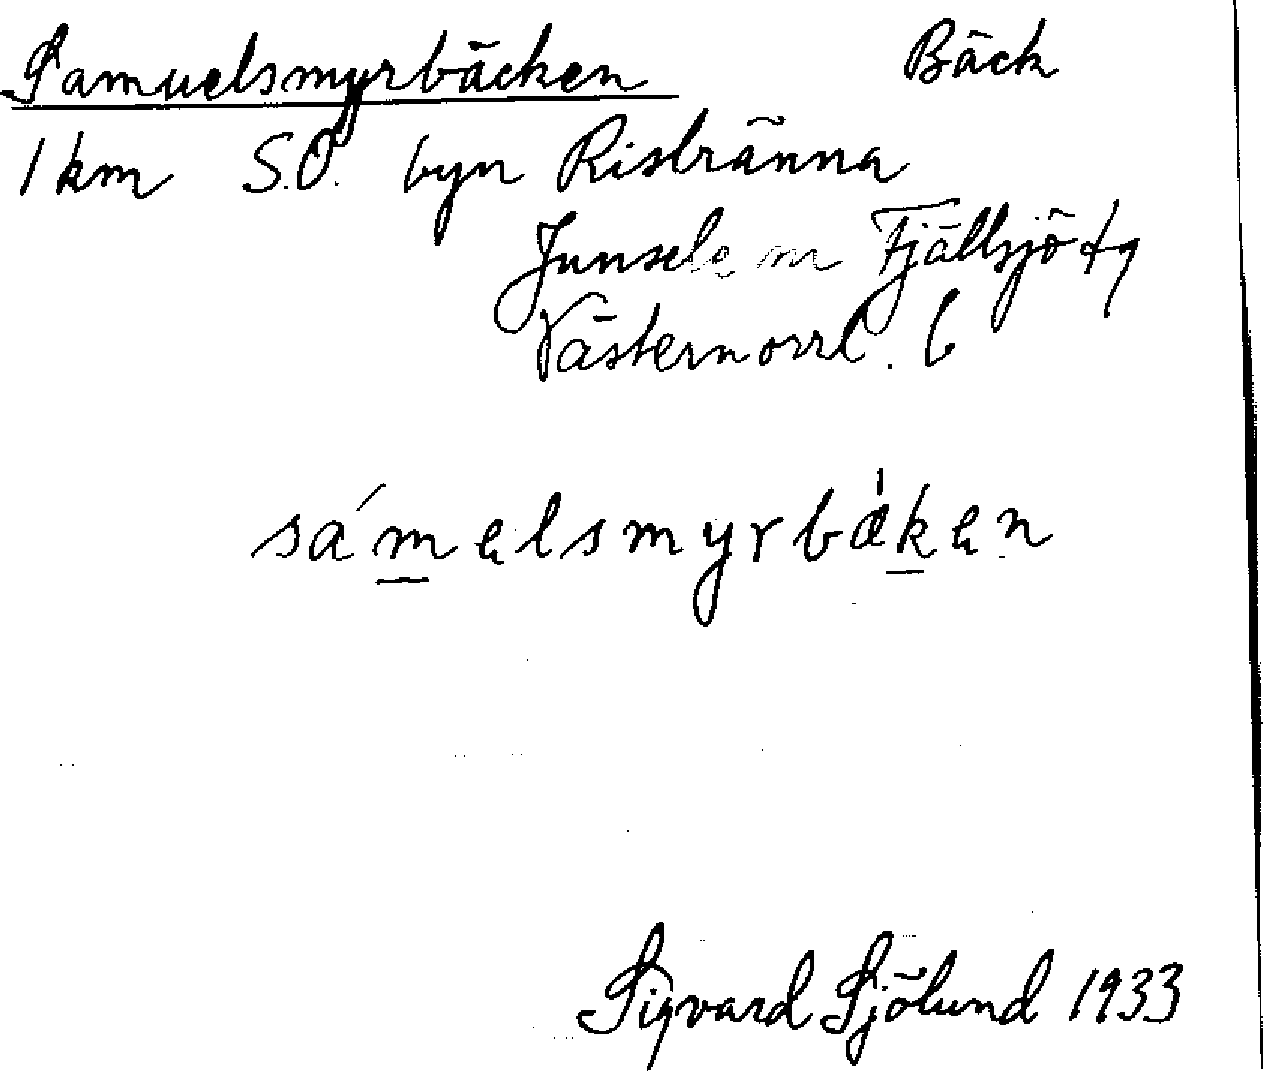 Samuelsmyrbäcken Bäck
1 km S.O. byn Risbränna
Junsele sn Fjällsjö tg
Västernorrl. l
sámelsmyrbæ̀ken
Sigvard Sjölund 1933